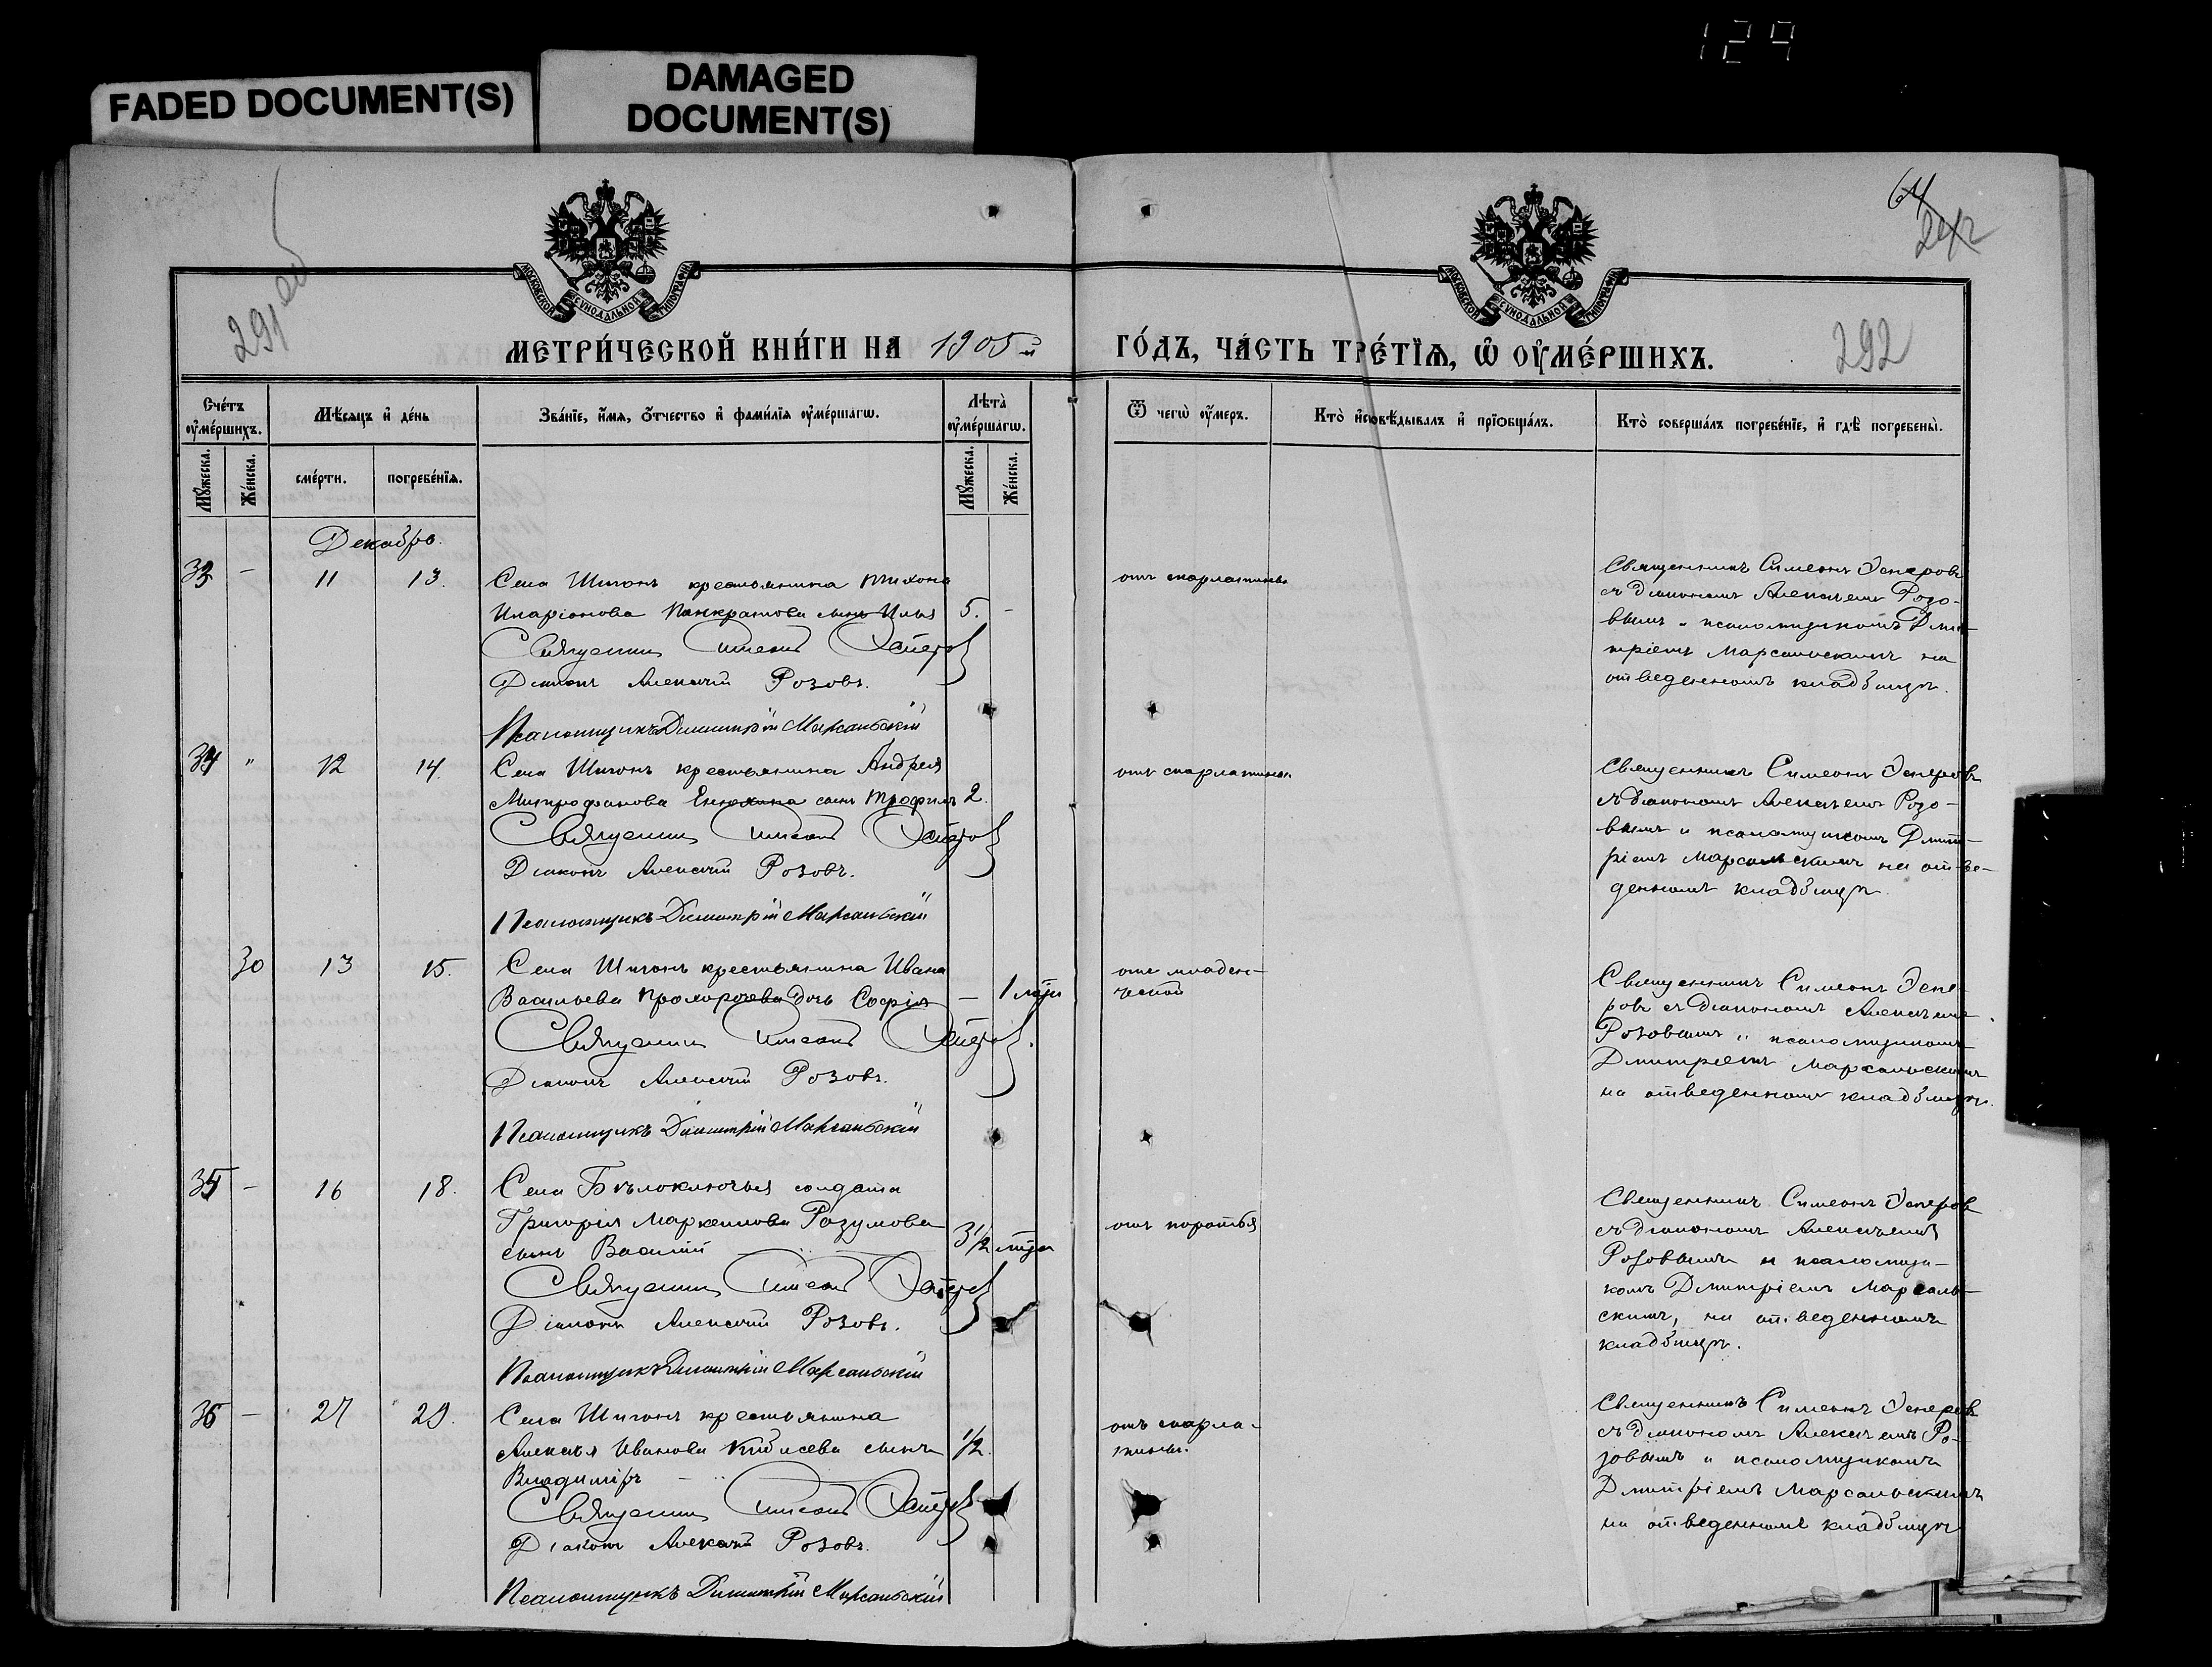 129
FADED DOCUMENT(S)
DAMAGED
DOCUMENT(S)
291 об
64
292
МОСКОВСКОЙ СѴНОДАЛЬНОЙ ТИПОГРАФІИ
МОСКОВСКОЙ СѴНОДАЛЬНОЙ ТИПОГРАФІИ
МЕТРИ́ЧЕСКОЙ КНИ́ГИ НА 1905й
ГО́ДЪ, ЧА́СТЬ ТРЕ́ТІѦ, Ѡ҆ ОУ҆МЕ́РШИХЪ.
Сче́тъ оу҆ме́ршихъ.
Мѣ́сяцъ и҆ де́нь
Зва́нїе, и҆́мя, ѻ҆́тчество и҆ фами́лїя оу҆ме́ршагѡ.
Лѣ́та оу҆ме́ршагѡ.
Ѿ чегѡ̀ оу҆́меръ.
Кто̀ и҆сповѣ́дывалъ и҆ прїѻбща́лъ.
Кто̀ соверша́лъ погребе́нїе, и҆ гдѣ̀ погребены̀.
Му́жеска.
Же́нска.
сме́рти.
погребе́нїя.
Му́жеска.
Же́нска.
Декабрь.
33 - 11 13. Села Шигонъ крестьянина Тихона
Иларіонова Панкратова сынъ Илья 5. -
Священникъ Симеонъ Эсперовъ
Діаконъ Алексѣй Розовъ.
Псаломщикъ Димитрій Марсальскій
отъ скарлатины
Священникъ Симеонъ Эсперовъ
съ діакономъ Алексѣемъ Розо-
вымъ и псаломщикомъ Дми-
тріемъ Марсальскимъ на
отведенномъ кладбищѣ.
34 " 12 14. Села Шигонъ крестьянина Андрея
Митрофанова Енюхина сынъ Трофимъ 2.
Священникъ Симеонъ Эсперовъ
Діаконъ Алексѣй Розовъ.
Псаломщикъ Димитрій Марсальскій
отъ скарлатины
Священникъ Симеонъ Эсперовъ
съ діакономъ Алексѣемъ Розо-
вымъ и псаломщикомъ Дмит-
ріемъ Марсальскимъ на отве-
денномъ кладбищѣ.
30 13 15. Села Шигонъ крестьянина Ивана
Васильева Прохорочева дочь Софія - 1 мѣс
Священникъ Симеонъ Эсперовъ
Діаконъ Алексѣй Розовъ.
Псаломщикъ Димитрій Марсальскій
отъ младен-
ческой
Священникъ Симеонъ Эспе-
ровъ съ діакономъ Алексѣемъ
Розовымъ и псаломщикомъ
Дмитріемъ Марсальскимъ
на отведенномъ кладбищѣ.
35 - 16 18. Села Бѣлоключья солдата
Григорія Маркеллова Разумова
сынъ Василій 3½ мѣся
Священникъ Симеонъ Эсперовъ
Діаконъ Алексѣй Розовъ.
Псаломщикъ Димитрій Марсальскій
отъ
Священникъ Симеонъ Эсперовъ
съ діакономъ Алексѣемъ
Розовымъ и псаломщи-
комъ Дмитріемъ Марсаль-
скимъ, на отведенномъ
кладбищѣ.
36 - 27 29. Села Шигонъ крестьянина
Алексѣя Иванова сынъ ½.
Владиміръ
Священникъ Симеонъ Эсперовъ
Діаконъ Алексѣй Розовъ.
Псаломщикъ Димитрій Марсальскій
отъ скарла-
тины.
Священникъ Симеонъ Эсперовъ
съ діакономъ Алексѣемъ Ро-
зовымъ и псаломщикомъ
Дмитріемъ Марсальскимъ
на отведенномъ кладбищѣ